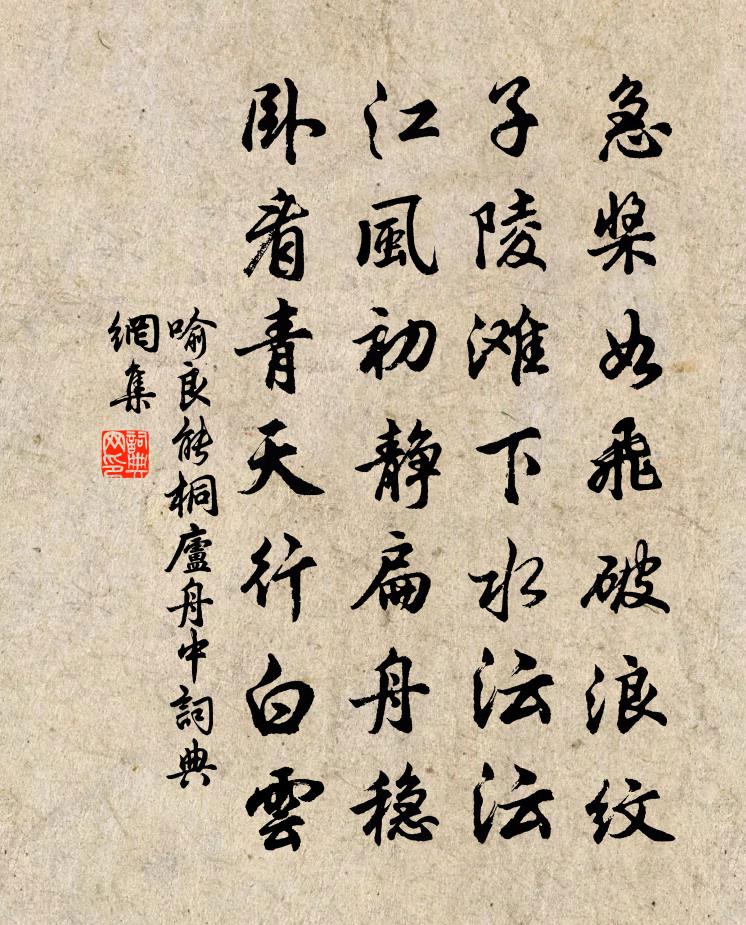 急桨如飛破浪紋
子陵滩下水沄沄
江風初静扁舟穏
卧看青天行白雲
喻良能桐廬舟中詞典
網集
詞典
网印